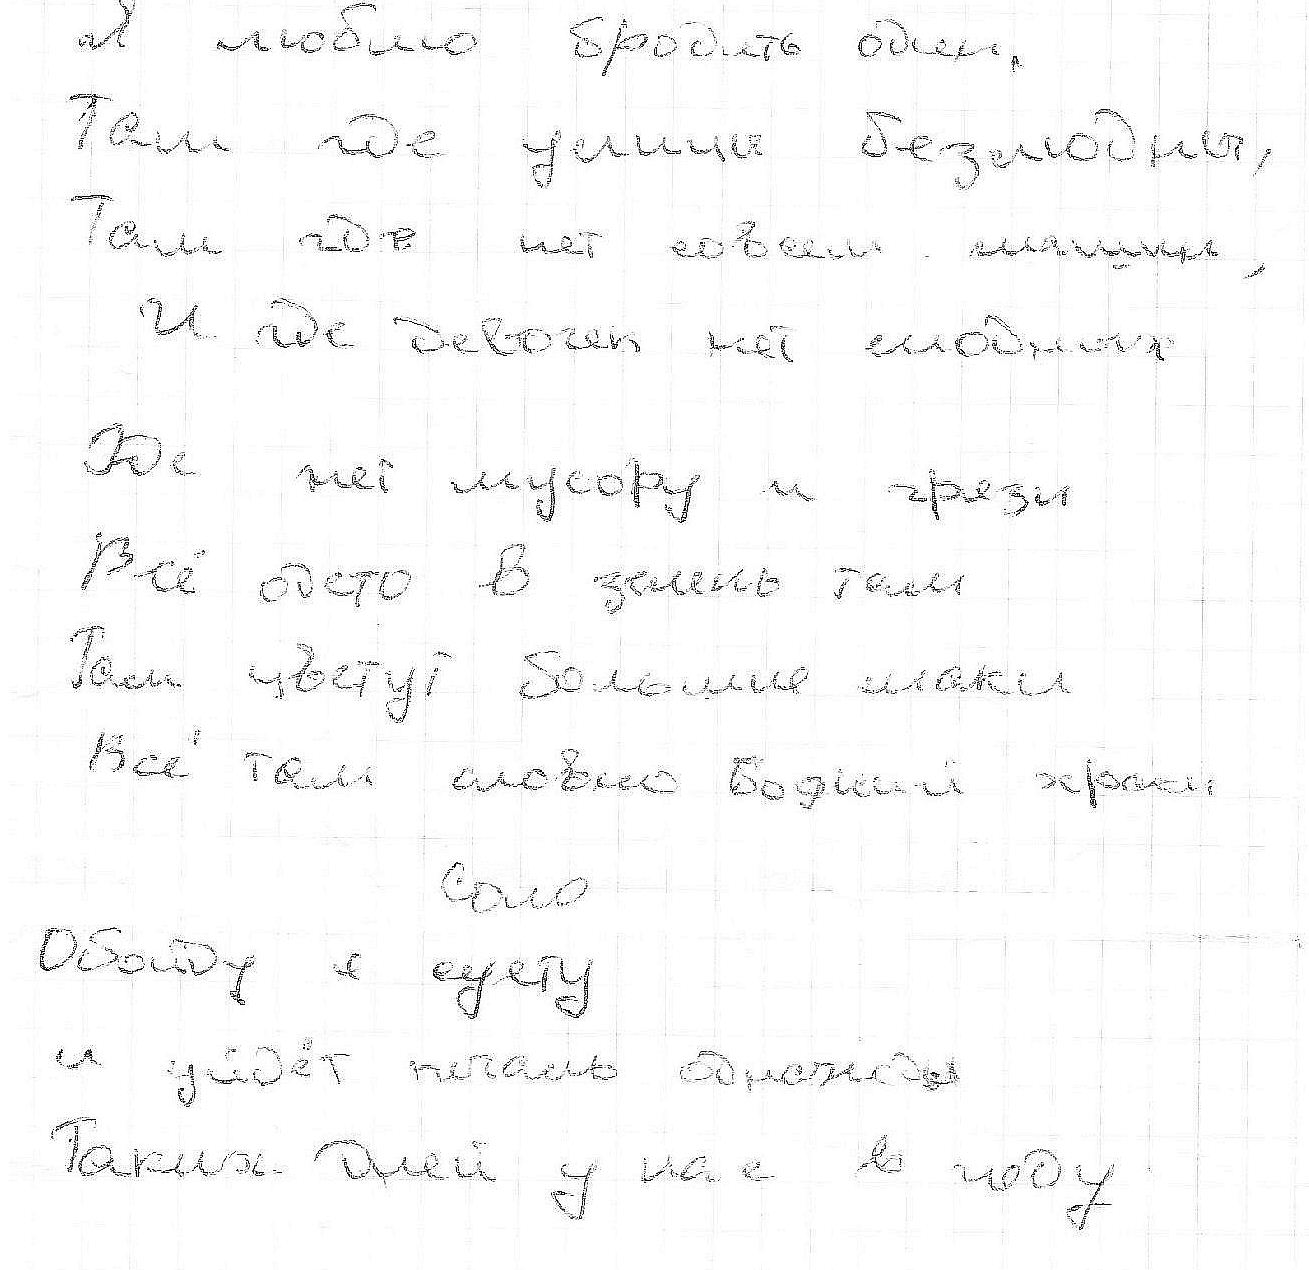 Я люблю бродить один,
Там где улицы безлюдны,
Там где нет совсем машин,
И где девочек нет модных
Где нет мусору и грязи
Всё одето в зелень там
Там цветут большие маки
Всё там словно Божий храм
Соло
Обойду я суету
и уйдёт печаль однажды
Таких дней у нас в году